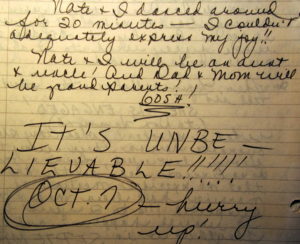 Nate & I danced around
for 20 minutes — I couldn't
adequately express my joy!!
Nate & I will be an aunt
& uncle! And Dad & Mom will
be grandparents!!
GOSH!
IT'S UNBE-
LIEVABLE!!!!!
OCT. 7 - hurry
up!